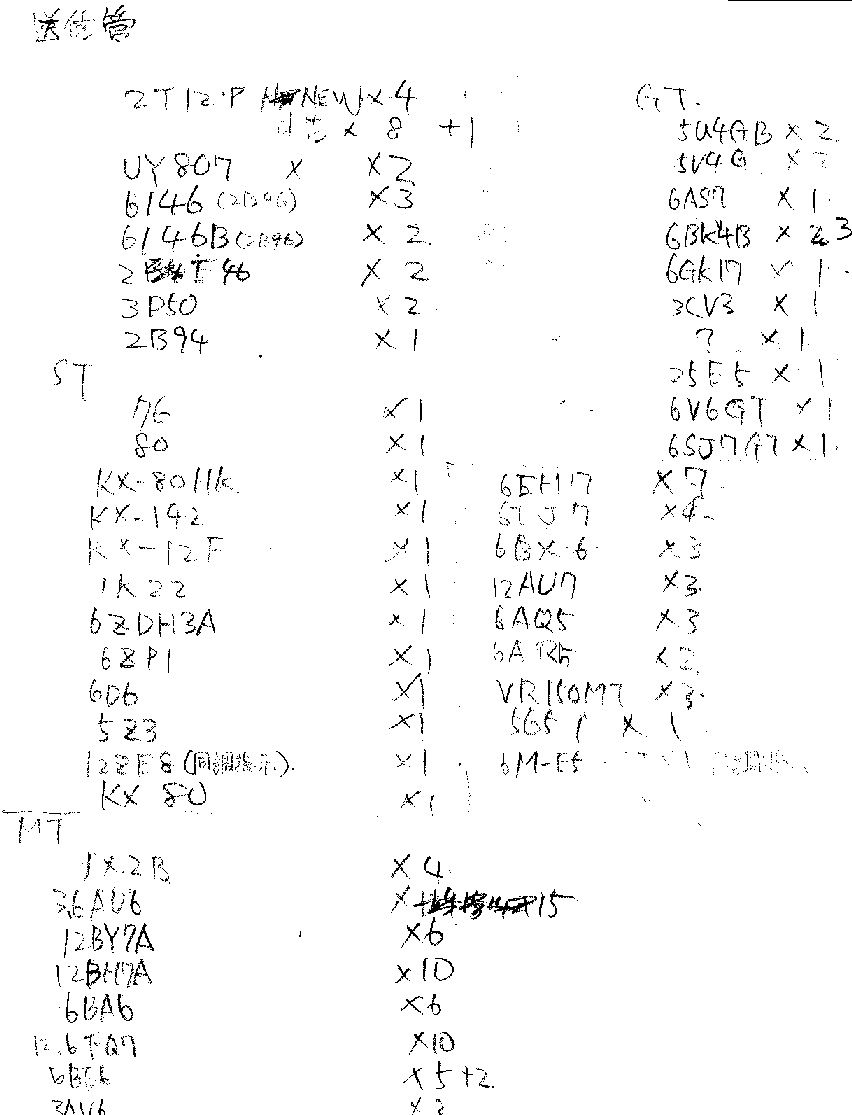 送信管
2T12P NEW × 4
中古 × 8 +1
UY 807 × ×2
6146 (2B46) ×3
6146B (2B46) × 2
2E46 × 2
3P50 × 2
2B94 × 1
ST
76 ×1
80 ×1
KX-80HK ×1
KX-142 ×1
KX-12F ×1
1K22 ×1
6ZDH3A ×1
6ZP1 ×1
6D6 ×1
5Z3 ×1
12ZE8 (同調指示) ×1
KX 80 ×1
MT
1X2B ×4
3,6AU6 ×15
12BY7A ×6
12BH7A ×10
6BA6 ×6
12,6FQ7 ×10
6BE6 ×5+2
3AV6 ×2
GT
5U4GB × 2
5V4G × 2
6AS7 × 1
6BK4B × 3
6GK17 × 1
3CV3 × 1
? × 1
25E5 × 1
6V6GT × 1
6SJ7GT × 1
6EH17 ×7
6TJ7 ×4
6BX6 ×3
12AU7 ×3
6AQ5 ×3
6AR5 ×2
VR150MT ×3
5651 × 1
6M-E5